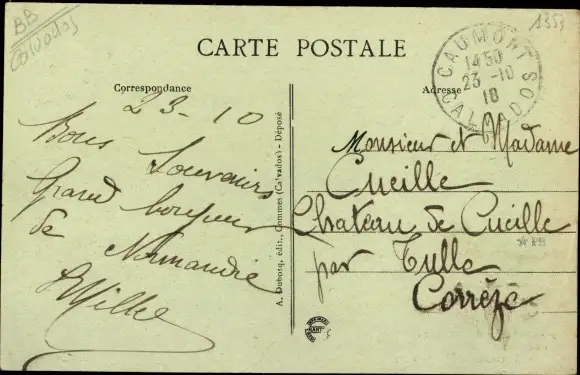 BB
Calvados
1353
CARTE POSTALE
Correspondance
Adresse
CAUMONT
1450
23 -10
18
CALVADOS
23-10
Bons Souvenirs
Grand bonjour
de Normandie
Monsieur et Madame
Cueille
Chateau de Cueille
par Tulle
Corrèze
A. Dubosq, édit., Commes (Ca'vados) - Déposé